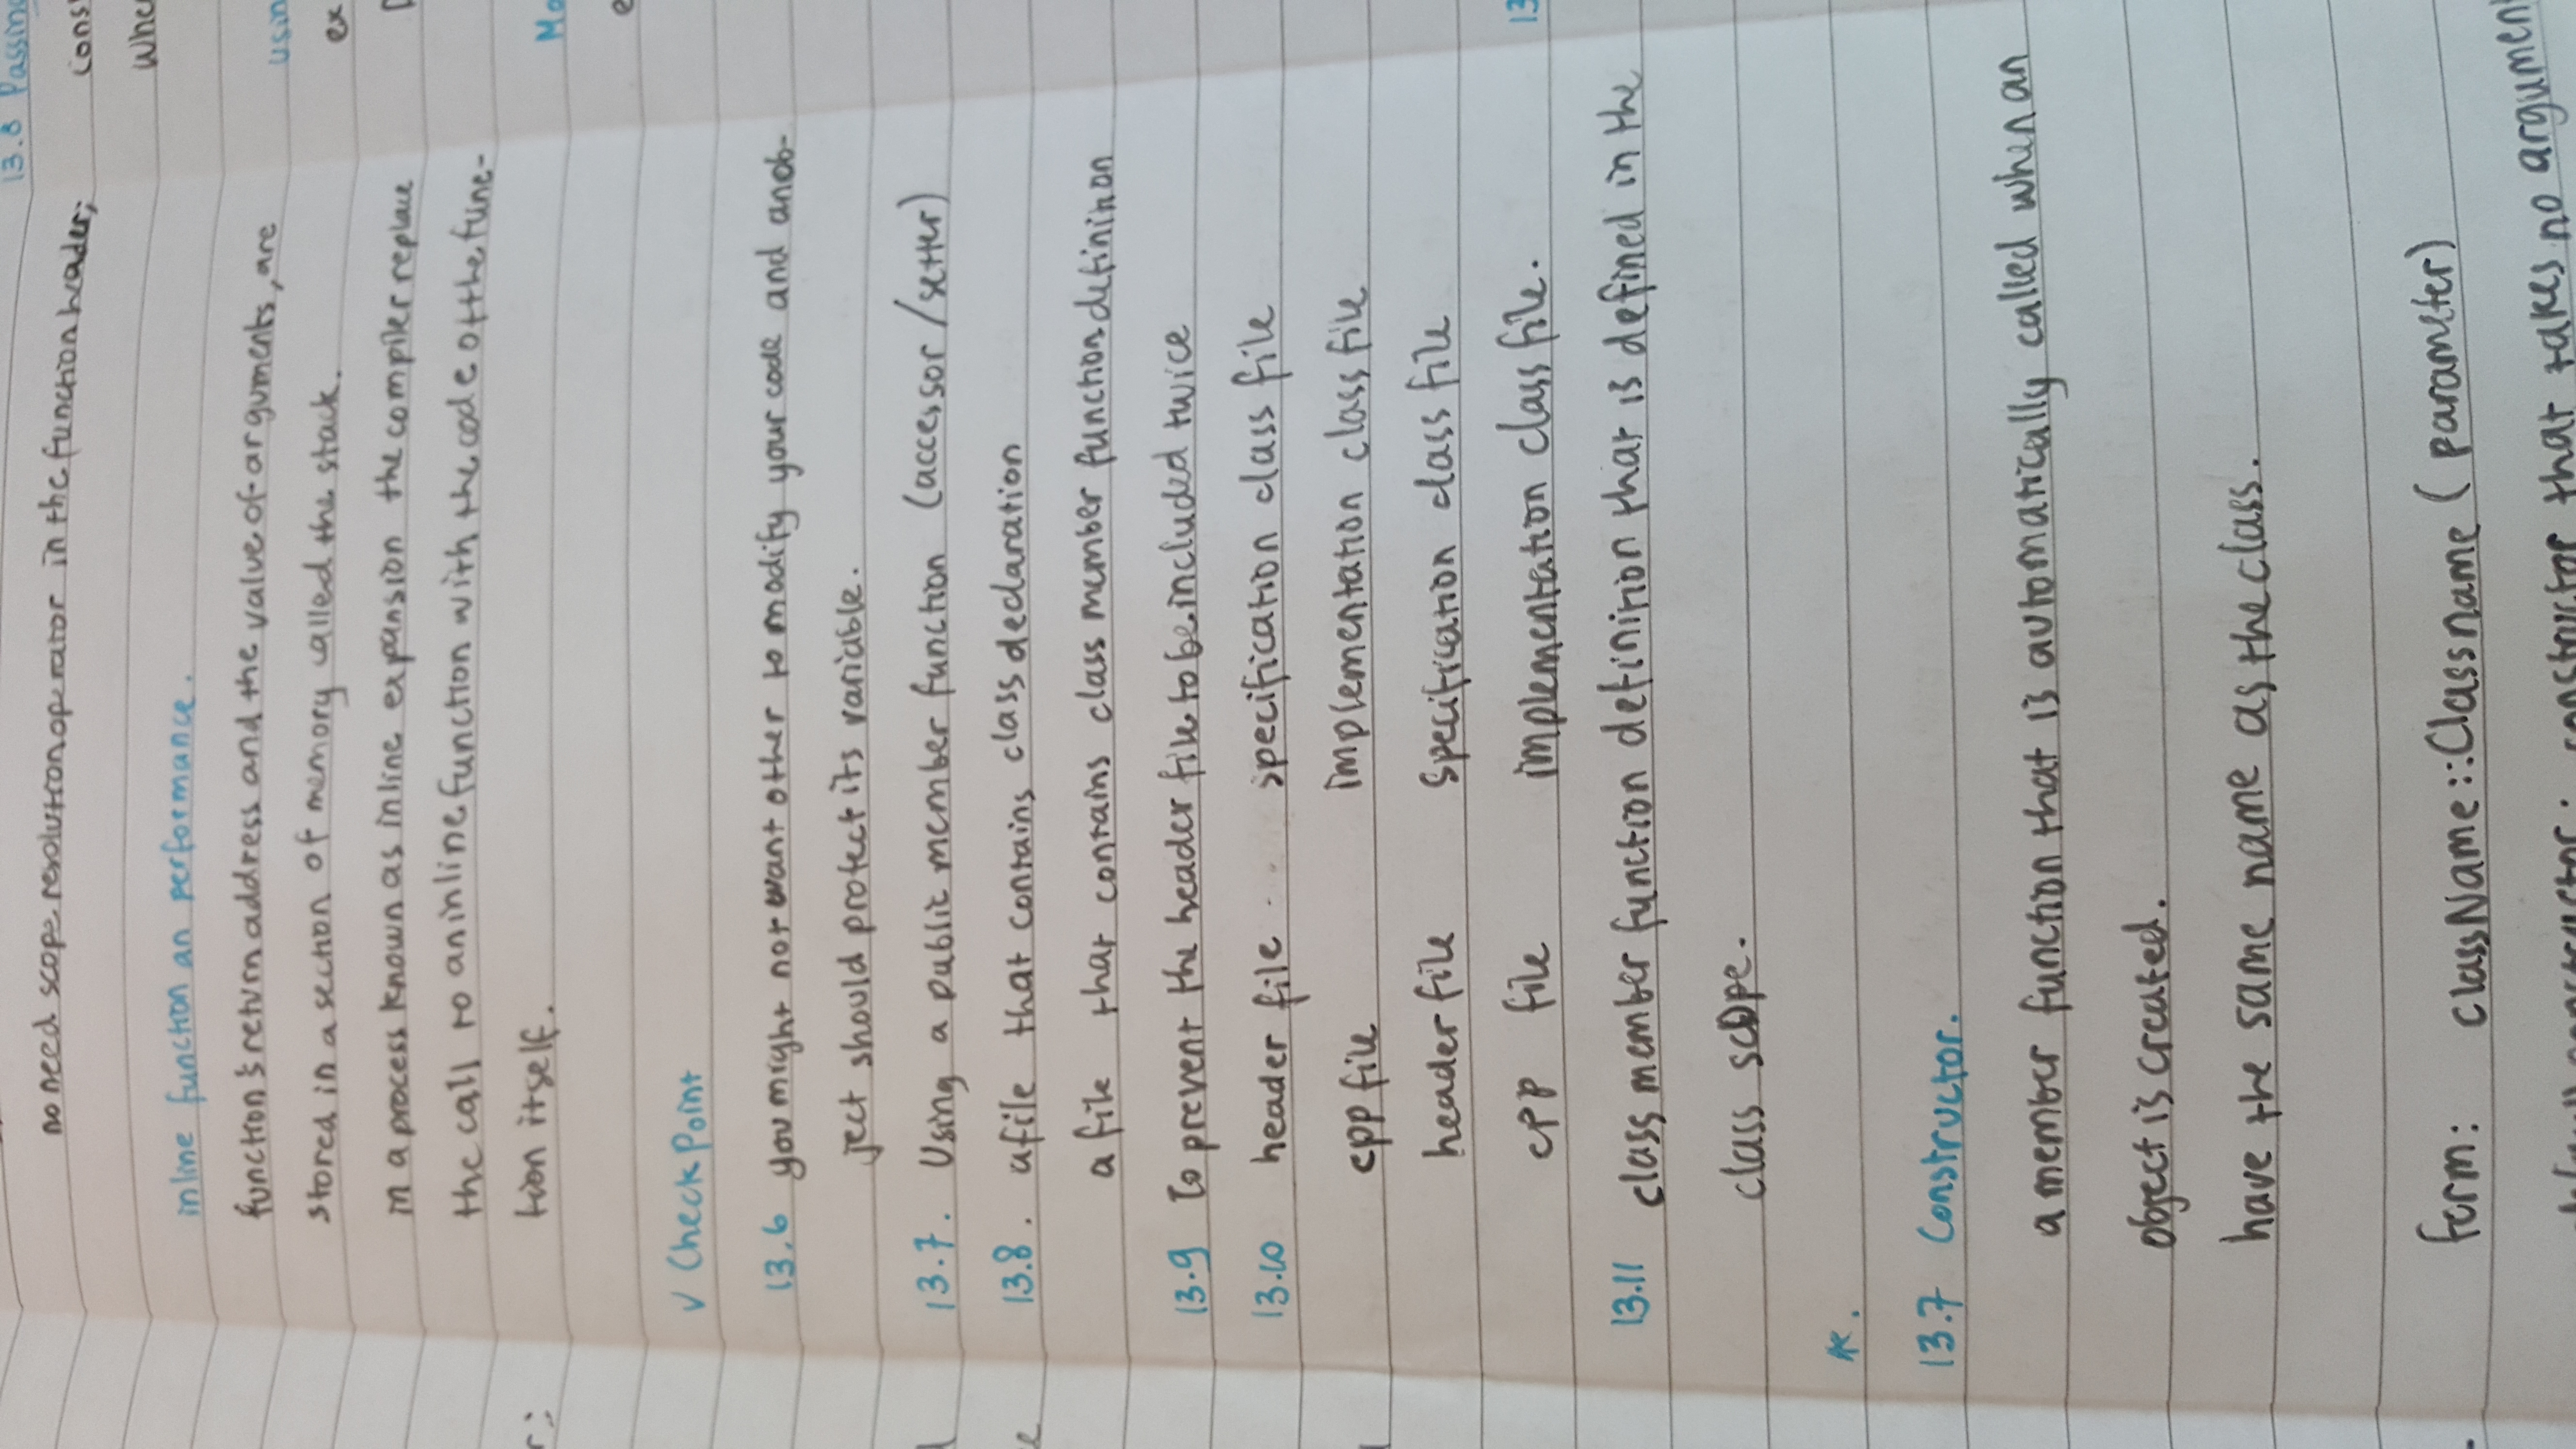 13.8 Passing
no need scope resolution operator in the function header;
cons
Whe
inline function an performance.
function's return address and the value of arguments, are
stored in a section of memory called the stack.
in a process known as inline expansion the compiler replace
the call to an inline function with the code of the func-
tion itself.
usin
ex
r;
Mo
e
✓ Check Point
13.6 you might not want other to modify your code and anob-
ject should protect its variable.
13.7. Using a public member function (accessor/setter)
13.8. a file that contains class declaration
a file that contains class member function definition
13.9 To prevent the header file to be included twice
13.10 header file specification class file
cpp file implementation class file
header file specification class file
cpp file implementation class file.
13
13.11 class member function definition that is defined in the
class scope.
13.7 Constructor.
a member function that is automatically called when an
object is created.
have the same name as the class.
form: classNName::Classname (parameter)
constructor: constructor that takes no argument